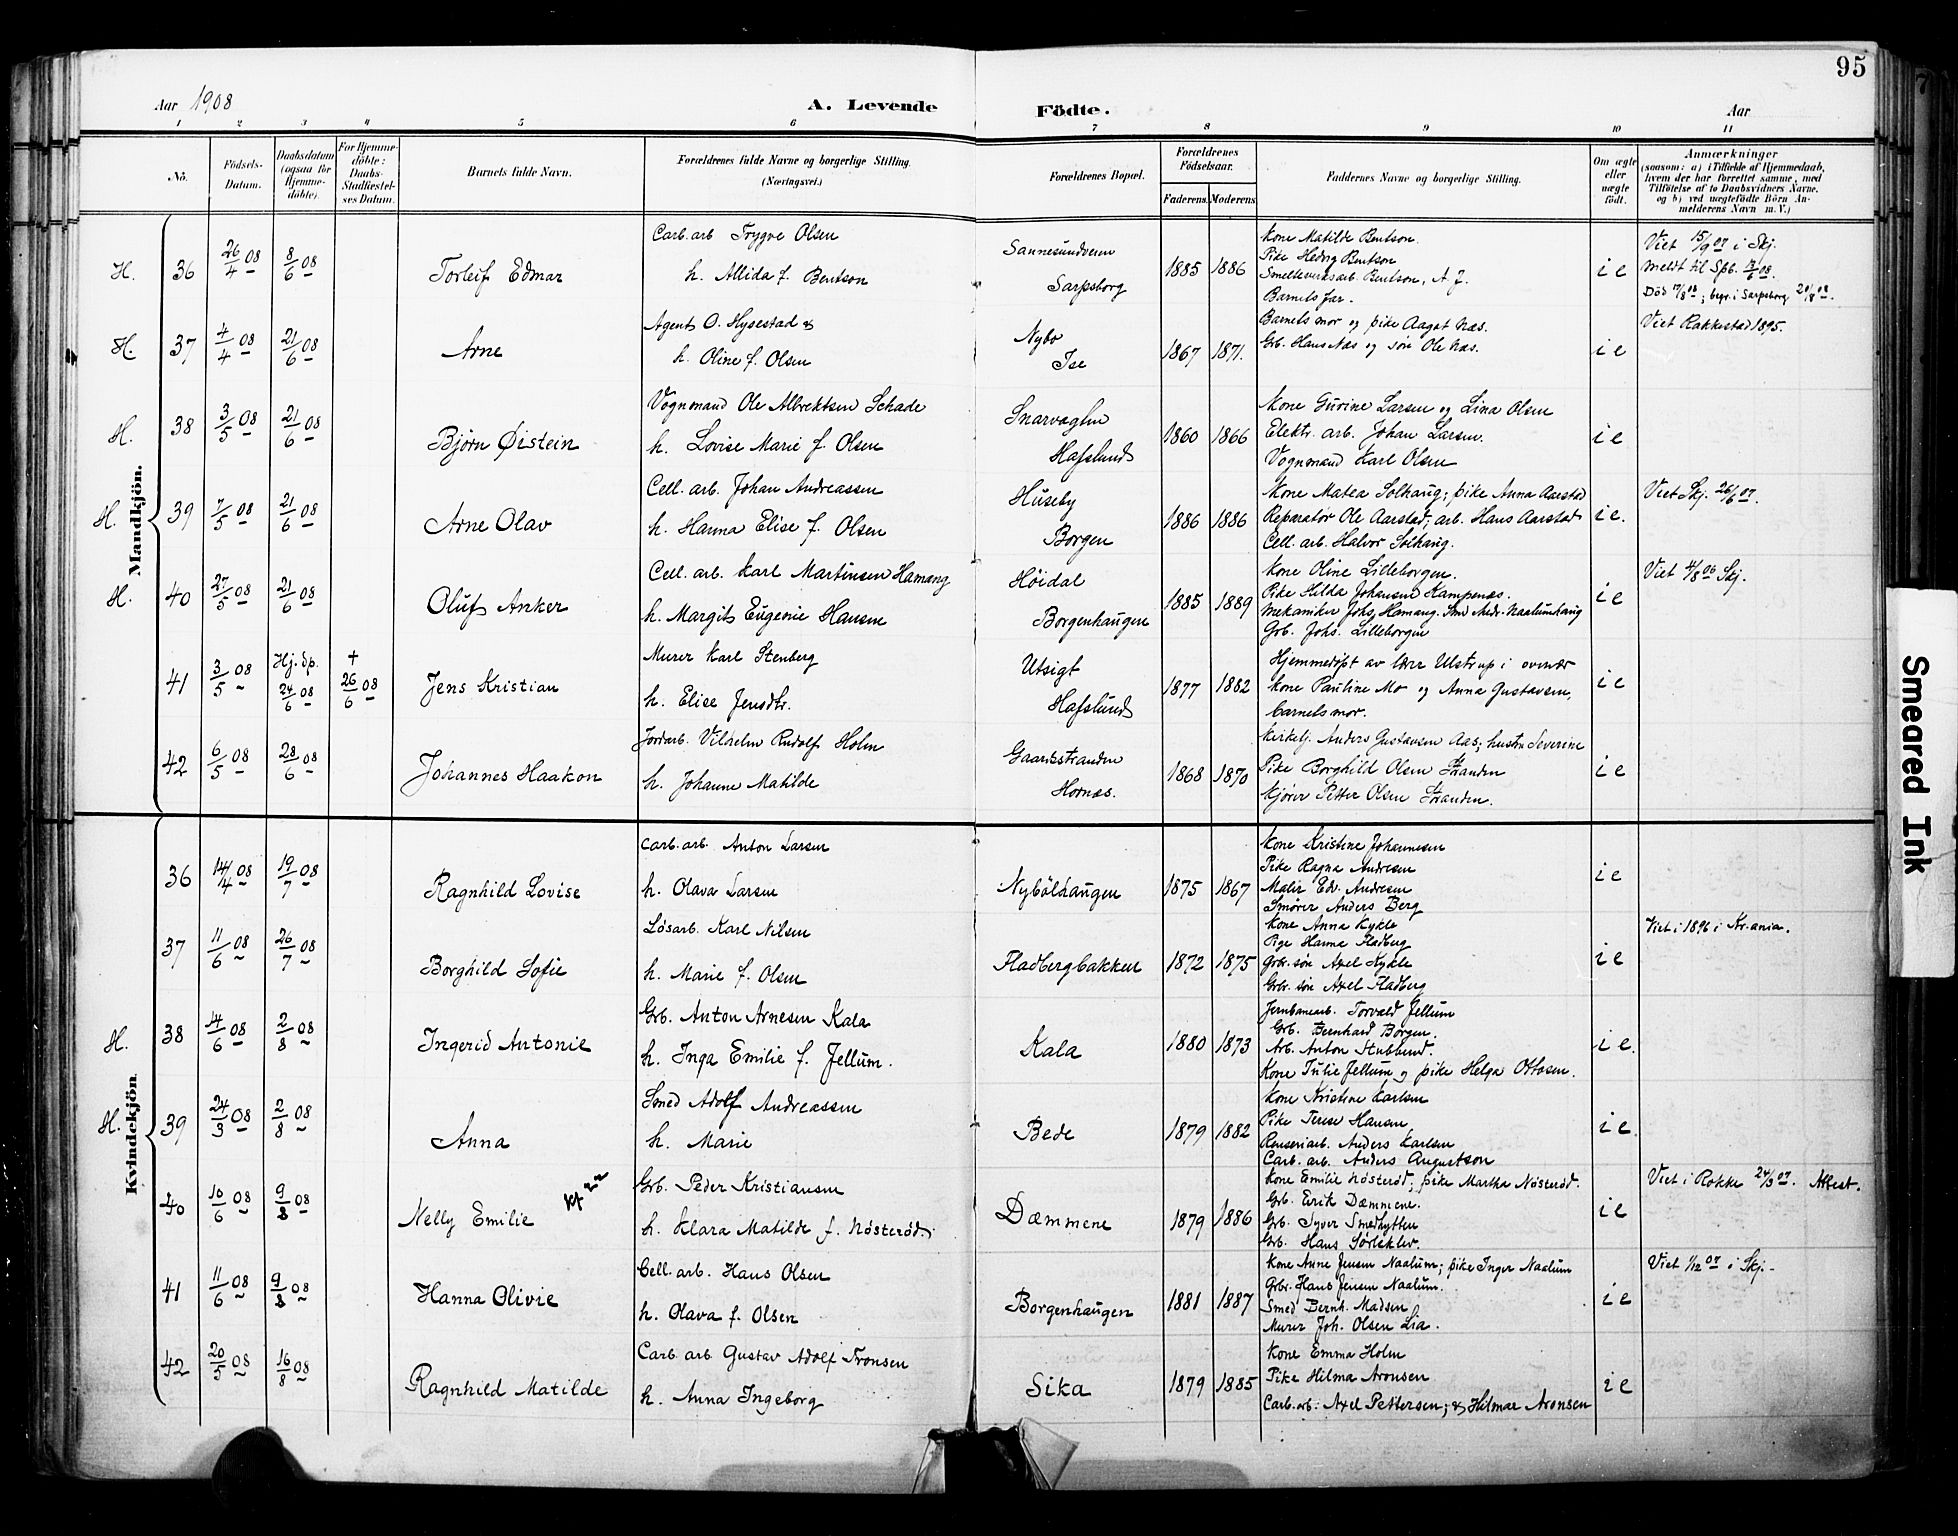 95
Aar 1908
A. Levende Födte.
Aar
1 2 3 4 5 6 7 8 9 10 11
No.
Födsels-Datum.
Daabsdatum (ogsaa for Hjemme-döbte).
For Hjemme-döbte: Daabs-Stadfæstel-ses Datum.
Barnets fulde Navn.
Forældrenes fulde Navne og borgerlige Stilling. (Næringsvei.)
Forældrenes Bopæl.
Forældrenes Födselsaar.
Faderens. Moderens
Faddernes Navne og borgerlige Stilling.
Om ægte eller uægte födt.
Anmærkninger
(saasom: a) i Tilfælde af Hjemmedaab,
hvem der har forrettet samme, med
Tilföielse af to Daabsvidners Navne.
og b) ved uægtefödte Börn An-
melderens Navn m. V.)
Mandkjön.
H. 36 26/4 08 8/6 08
Torleif Edmar
Carb. arb Trygve Olsen
h. Allida f. Bentson
Sannesundveien
Sarpsborg
1885 1886
Kone Matilde Bentson.
Pike Hedvig Bentson
Smelteverksarb. Bentson, A. J.
Barnets far.
i e
Viet 15/9 07 i Skj.
meldt til Spb. 12/6 08.
Död 17/8 08; begr. i Sarpsborg 20/8 08.
H. 37 4/4 08 21/6 08
Arne
Agent O. Hysestad &
h. Oline f. Olsen
Nybo
Ise
1867 1871.
Barnets mor og pike Aagot Næs.
Grb. Hans Næs og søn Ole Næs.
i e
Viet Rakkestad 1895.
H. 38 3/5 08 21/6 08
Bjørn Øistein
Vognmand Ole Albrektsen Schade
h. Lovise Marie f. Olsen
Hafslund
1860 1866
Kone Gurine Larsen og Lina Olsen
Elektr. arb. Johan Larsen.
Vognmand Karl Olsen
i e
H. 39 7/5 08 21/6 08
Arne Olav
Cell. arb. Johan Andreassen
h. Hanna Elise f. Olsen
Huseby
Borgen
1886 1886
Kone Matea Solhaug; pike Anna Aarstad
Reparatør Ole Aarstad; arb. Hans Aarstad
Cell. arb. Halvor Solhaug.
i e.
Viet Skj. 26/6 07.
H. 40 27/5 08 21/6 08
Oluf Anker
Cell. arb. Karl Martinsen Hamang
h. Margit Eugenie Hansen
Höidal
Borgenhaugen
1885 1889
Kone Oline Lilleborgen.
Pike Hilda Johansen Kampenæs.
Mekaniker Johs. Hamang. Smd Andr. Naalumhaug
Grb. Johs. Lilleborgen
i e
Viet 4/8 06 Skj.
41 3/5 08 Hj. dp. 24/6 08 + 26/6 08
Jens Kristian
Murer Karl Stenberg
h. Elise Jensdtr.
Utsigt
Hafslund
1877 1882
Hjemmedøpt av lærer Ulstrup i overvær
Kone Pauline Mo og Anna Gustavsen,
barnets mor.
i e
42 6/5 08 28/6 08
Johannes Haakon
Jordarb. Vilhelm Rudolf Holm
h. Johanne Matilde
Hornæs.
1868 1870
Kirketj. Anders Gustavsen Aas; hustru Severine
Pike Borghild Olsen Stranden
Kjører Petter Olsen Stranden.
i e
Kvindekjön
36 14/4 08 19/7 08
Ragnhild Lovise
Carb. arb. Anton Larsen
h. Olava Larsen
Nybölhaugen
1875 1867
Kone Kristine Johannesen
Pike Ragna Andresen
Maler Edv. Andresen
Smører Anders Berg
i e
37 11/6 08 26/7 08
Borghild Sofie
Løsarb. Karl Nilsen
h. Marie f. Olsen
Fladbergbakken
1872 1875
Kone Anna Kykle
Pige Hanna Fladberg
Grbr. søn Axel Kykle
Grbr. søn Axel Fladberg
i e
Viet i 1896 i Kr.ania.
H. 38 14/6 08 2/8 08
Ingerid Antonie
Grb. Anton Arnesen Kala
h. Inga Emilie f. Jellum.
Kala
1880 1873
Jernbanearb. Torvald Jellum
Grb. Bernhard Borgen.
Arb. Anton Stublund.
Kone Julie Jellum og pike Helga Ottosen.
i e.
H. 39 24/3 08 2/8 08
Anna
Smed Adolf Andreassen
h. Marie
Bede
1879 1882
Kone Kristine Karlsen
Pike Terese Hansen,
Renseriarb. Anders Karlsen
Carb. arb. Anders Augustson
i e
40 10/6 08 9/8 08
Nelly Emilie
Grb. Peder Kristiansen
h. Klara Matilde f. Nösteröd.
Dæmmene
1879 1886
Kone Emilie Nösteröd; pike Martha Nösteröd.
Grb. Erik Dæmmene.
Grb. Syver Smedhytten
Grb. Hans Sørleklev.
i e
Viet i Rokke 24/3 07. Attest.
41 11/6 08 9/8 08
Hanna Olivie
Cell. arb. Hans Olsen
h. Olava f. Olsen
Borgenhaugen
1881 1887
Kone Anne Jensen Naalum; pike Inger Naalum
Grbr. Hans Jensen Naalum.
Smed Bernh. Madsen
Murer Joh. Olsen Lia.
i e
Viet 1/12 07 i Skj.
42 20/5 08 16/8 08
Ragnhild Matilde
Carb. arb Gustav Adolf Tronsen
h. Anna Ingeborg
Sika
1879 1885
Kone Emma Holm
Pike Hilma Aronsen
Carb. arb. Axel Pettersen; & Hilmar Aronsen
i e
Smeared Ink
7